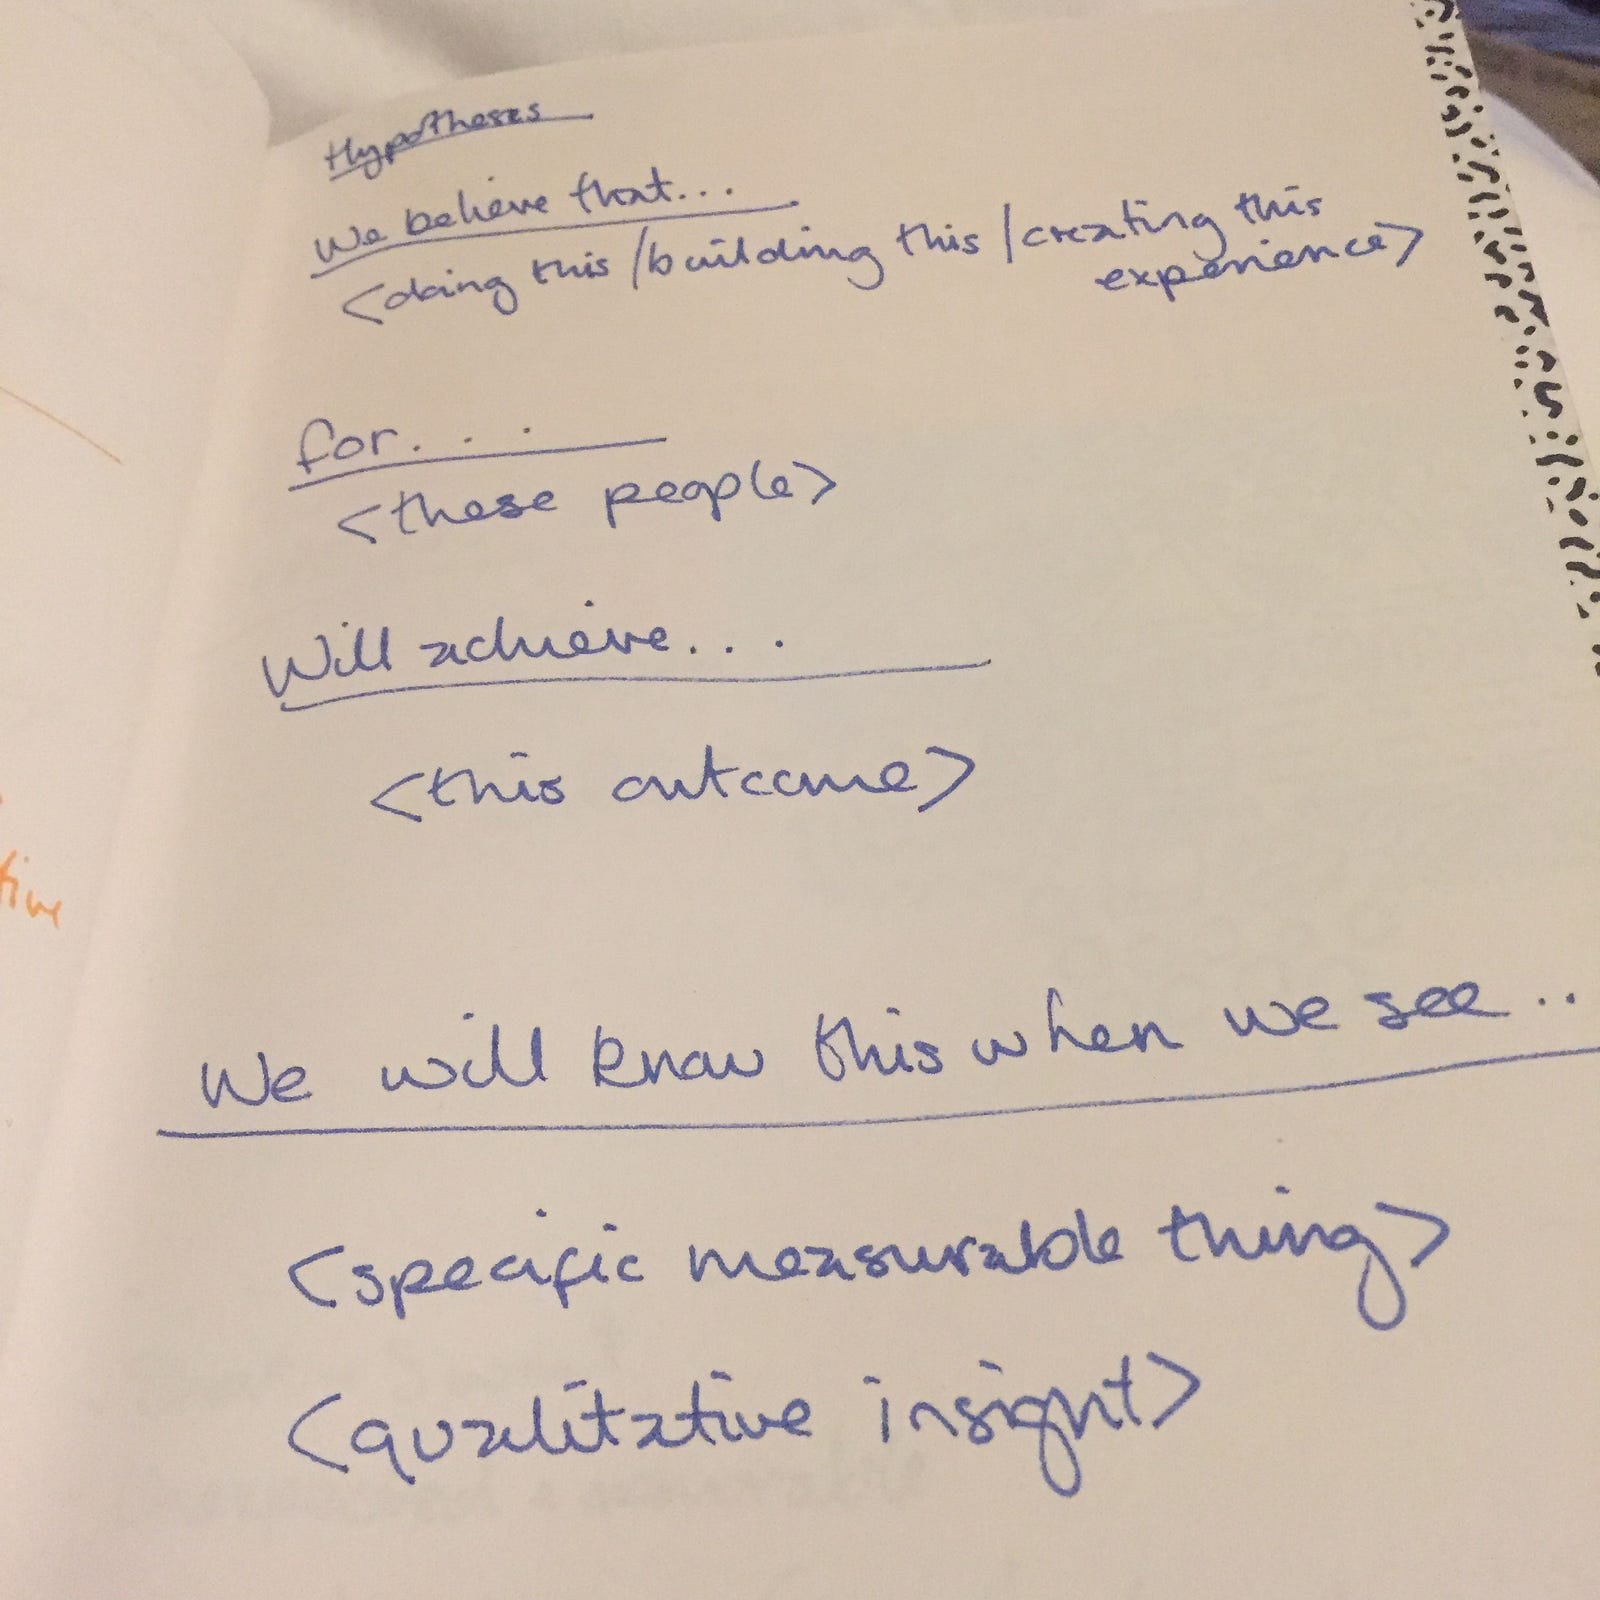 Hypotheses
We believe that...
<doing this/building this/creating this
experience>
for....
<these people>
Will achieve...
<this outcome>
We will know this when we see..
<specific measurable thing>
<qualitative insight>